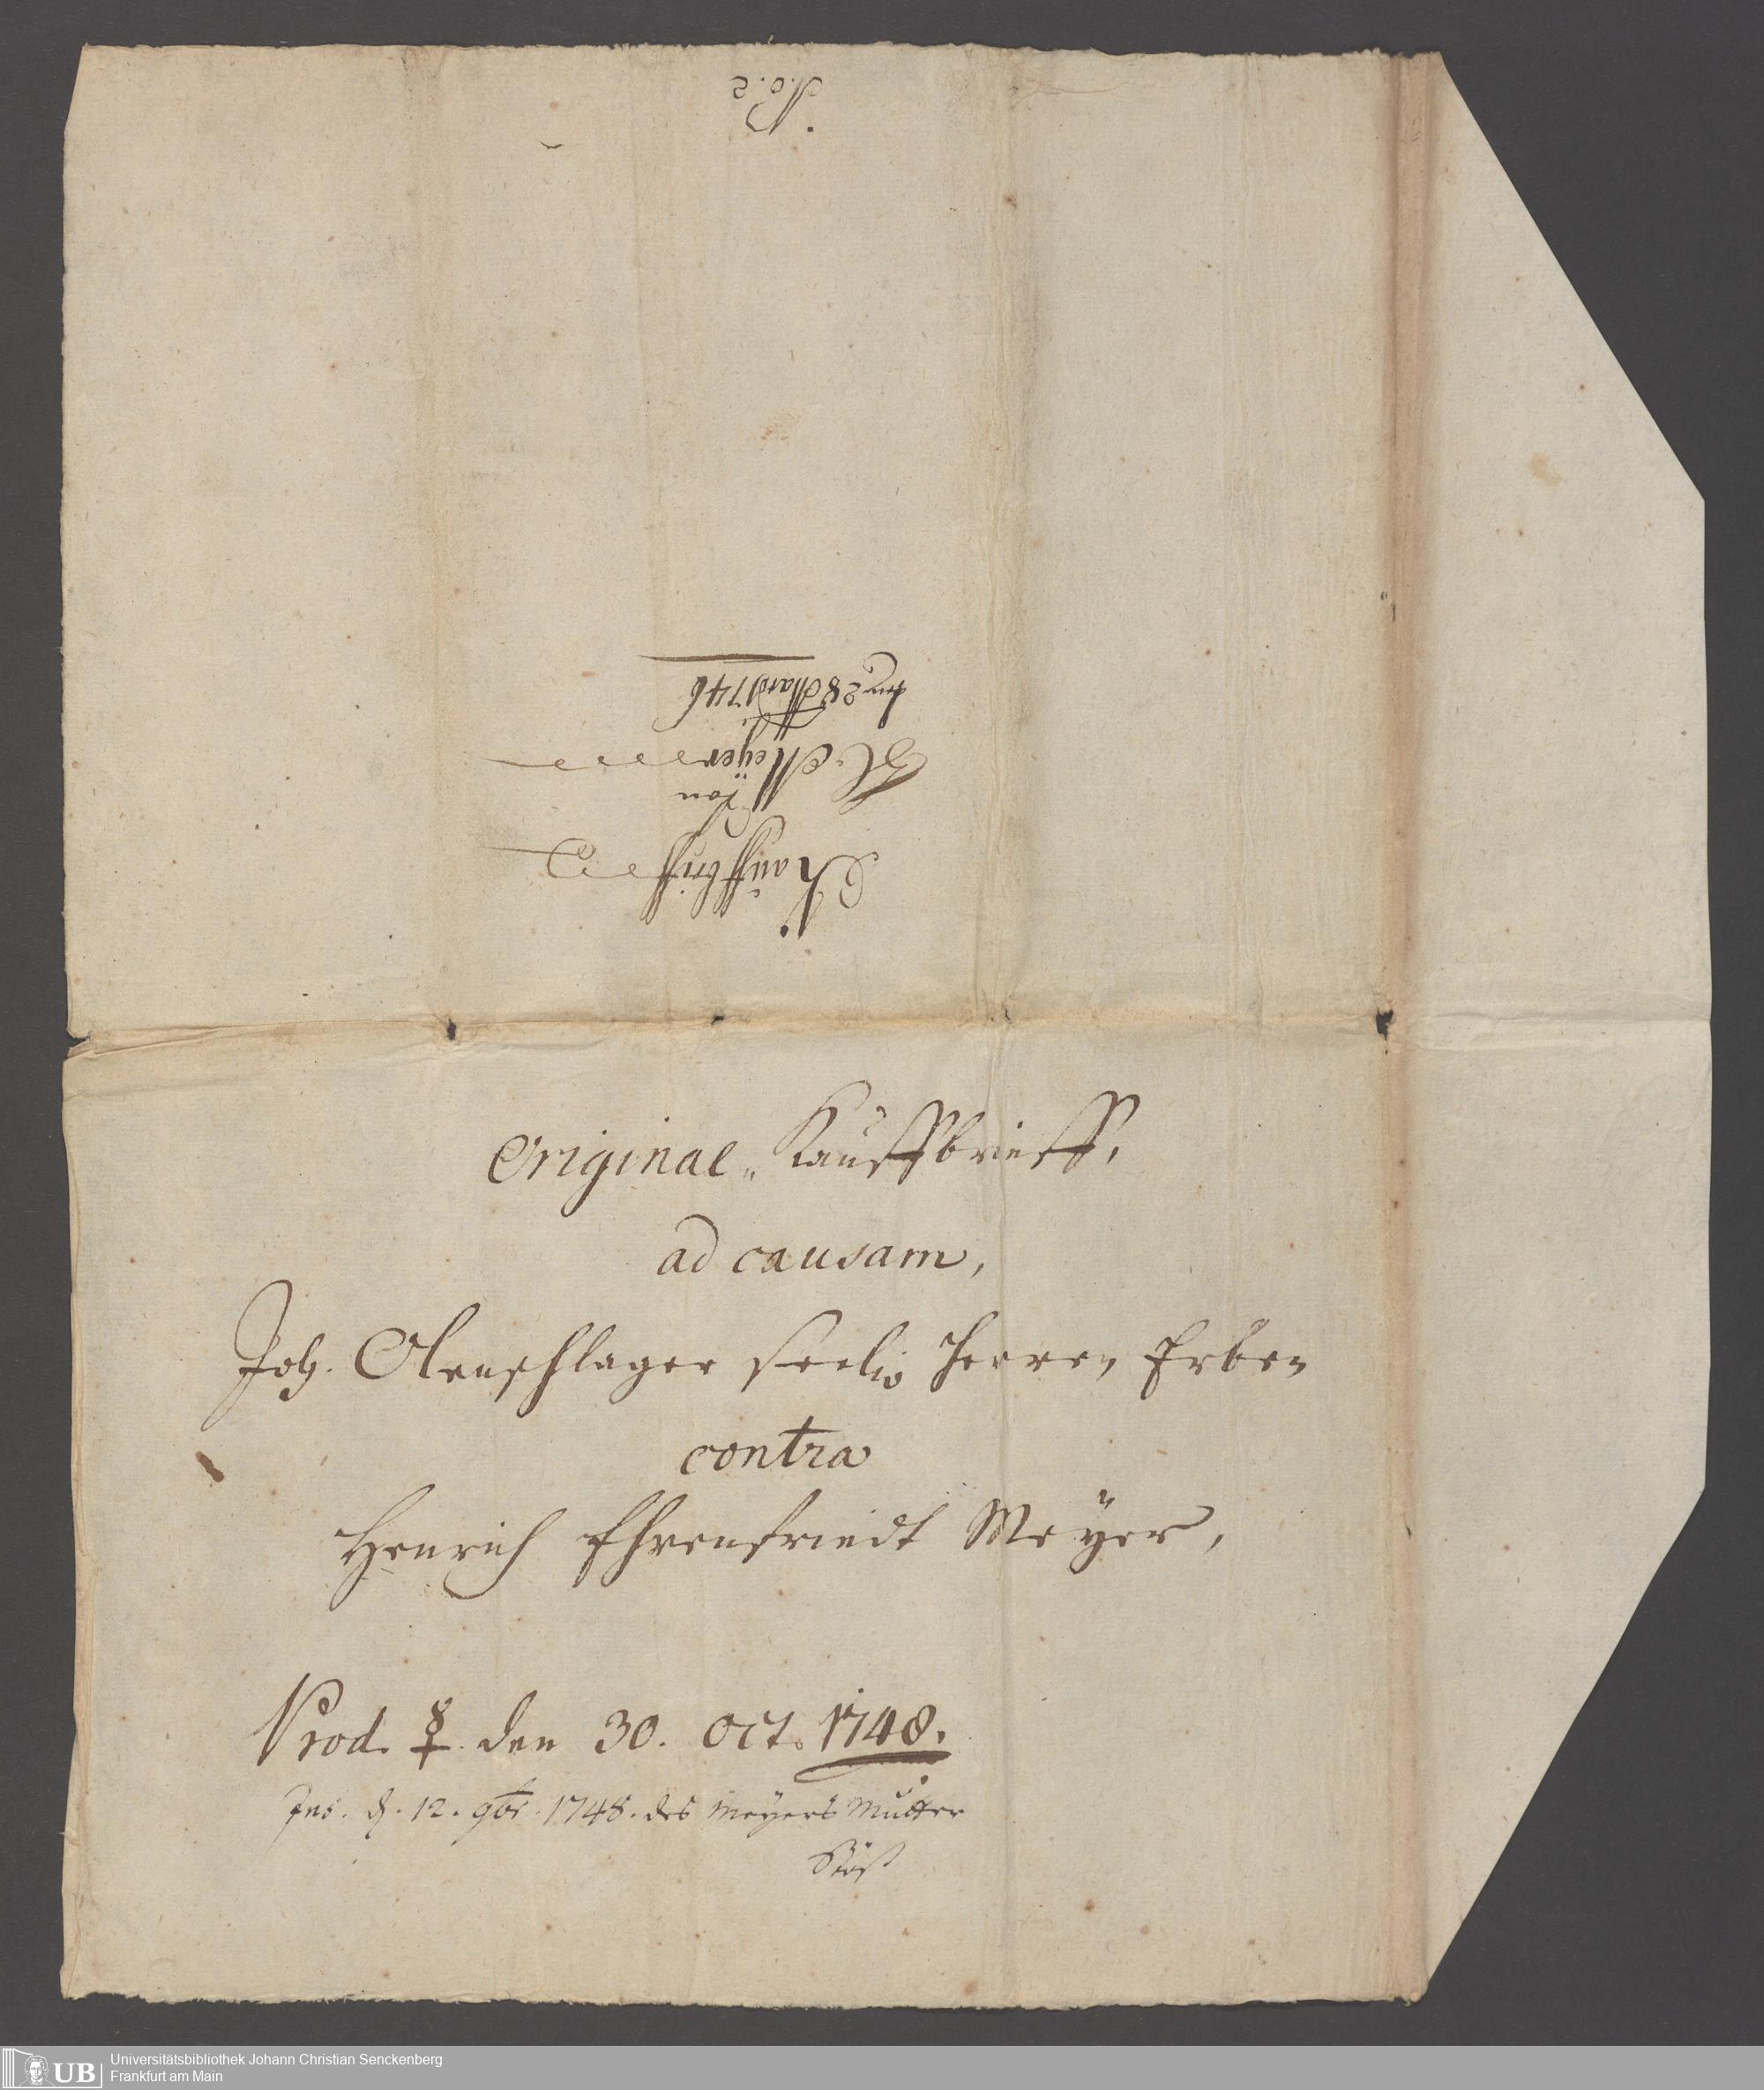 No. 2
Kauffbrieff
von
H. Meÿer
den 28 Martÿ 1746
Original-Kauffbrieff,
ad causam,
Joh. Olenschlager seelig Herren Erben
contra
Henrich Ehrenfriedt Meÿer,
Prod. ☿ den 30. Oct. 1748.
Ins. d. 12. 9br. 1748. des Meÿers Mutter
UB
Universitätsbibliothek Johann Christian Senckenberg
Frankfurt am Main